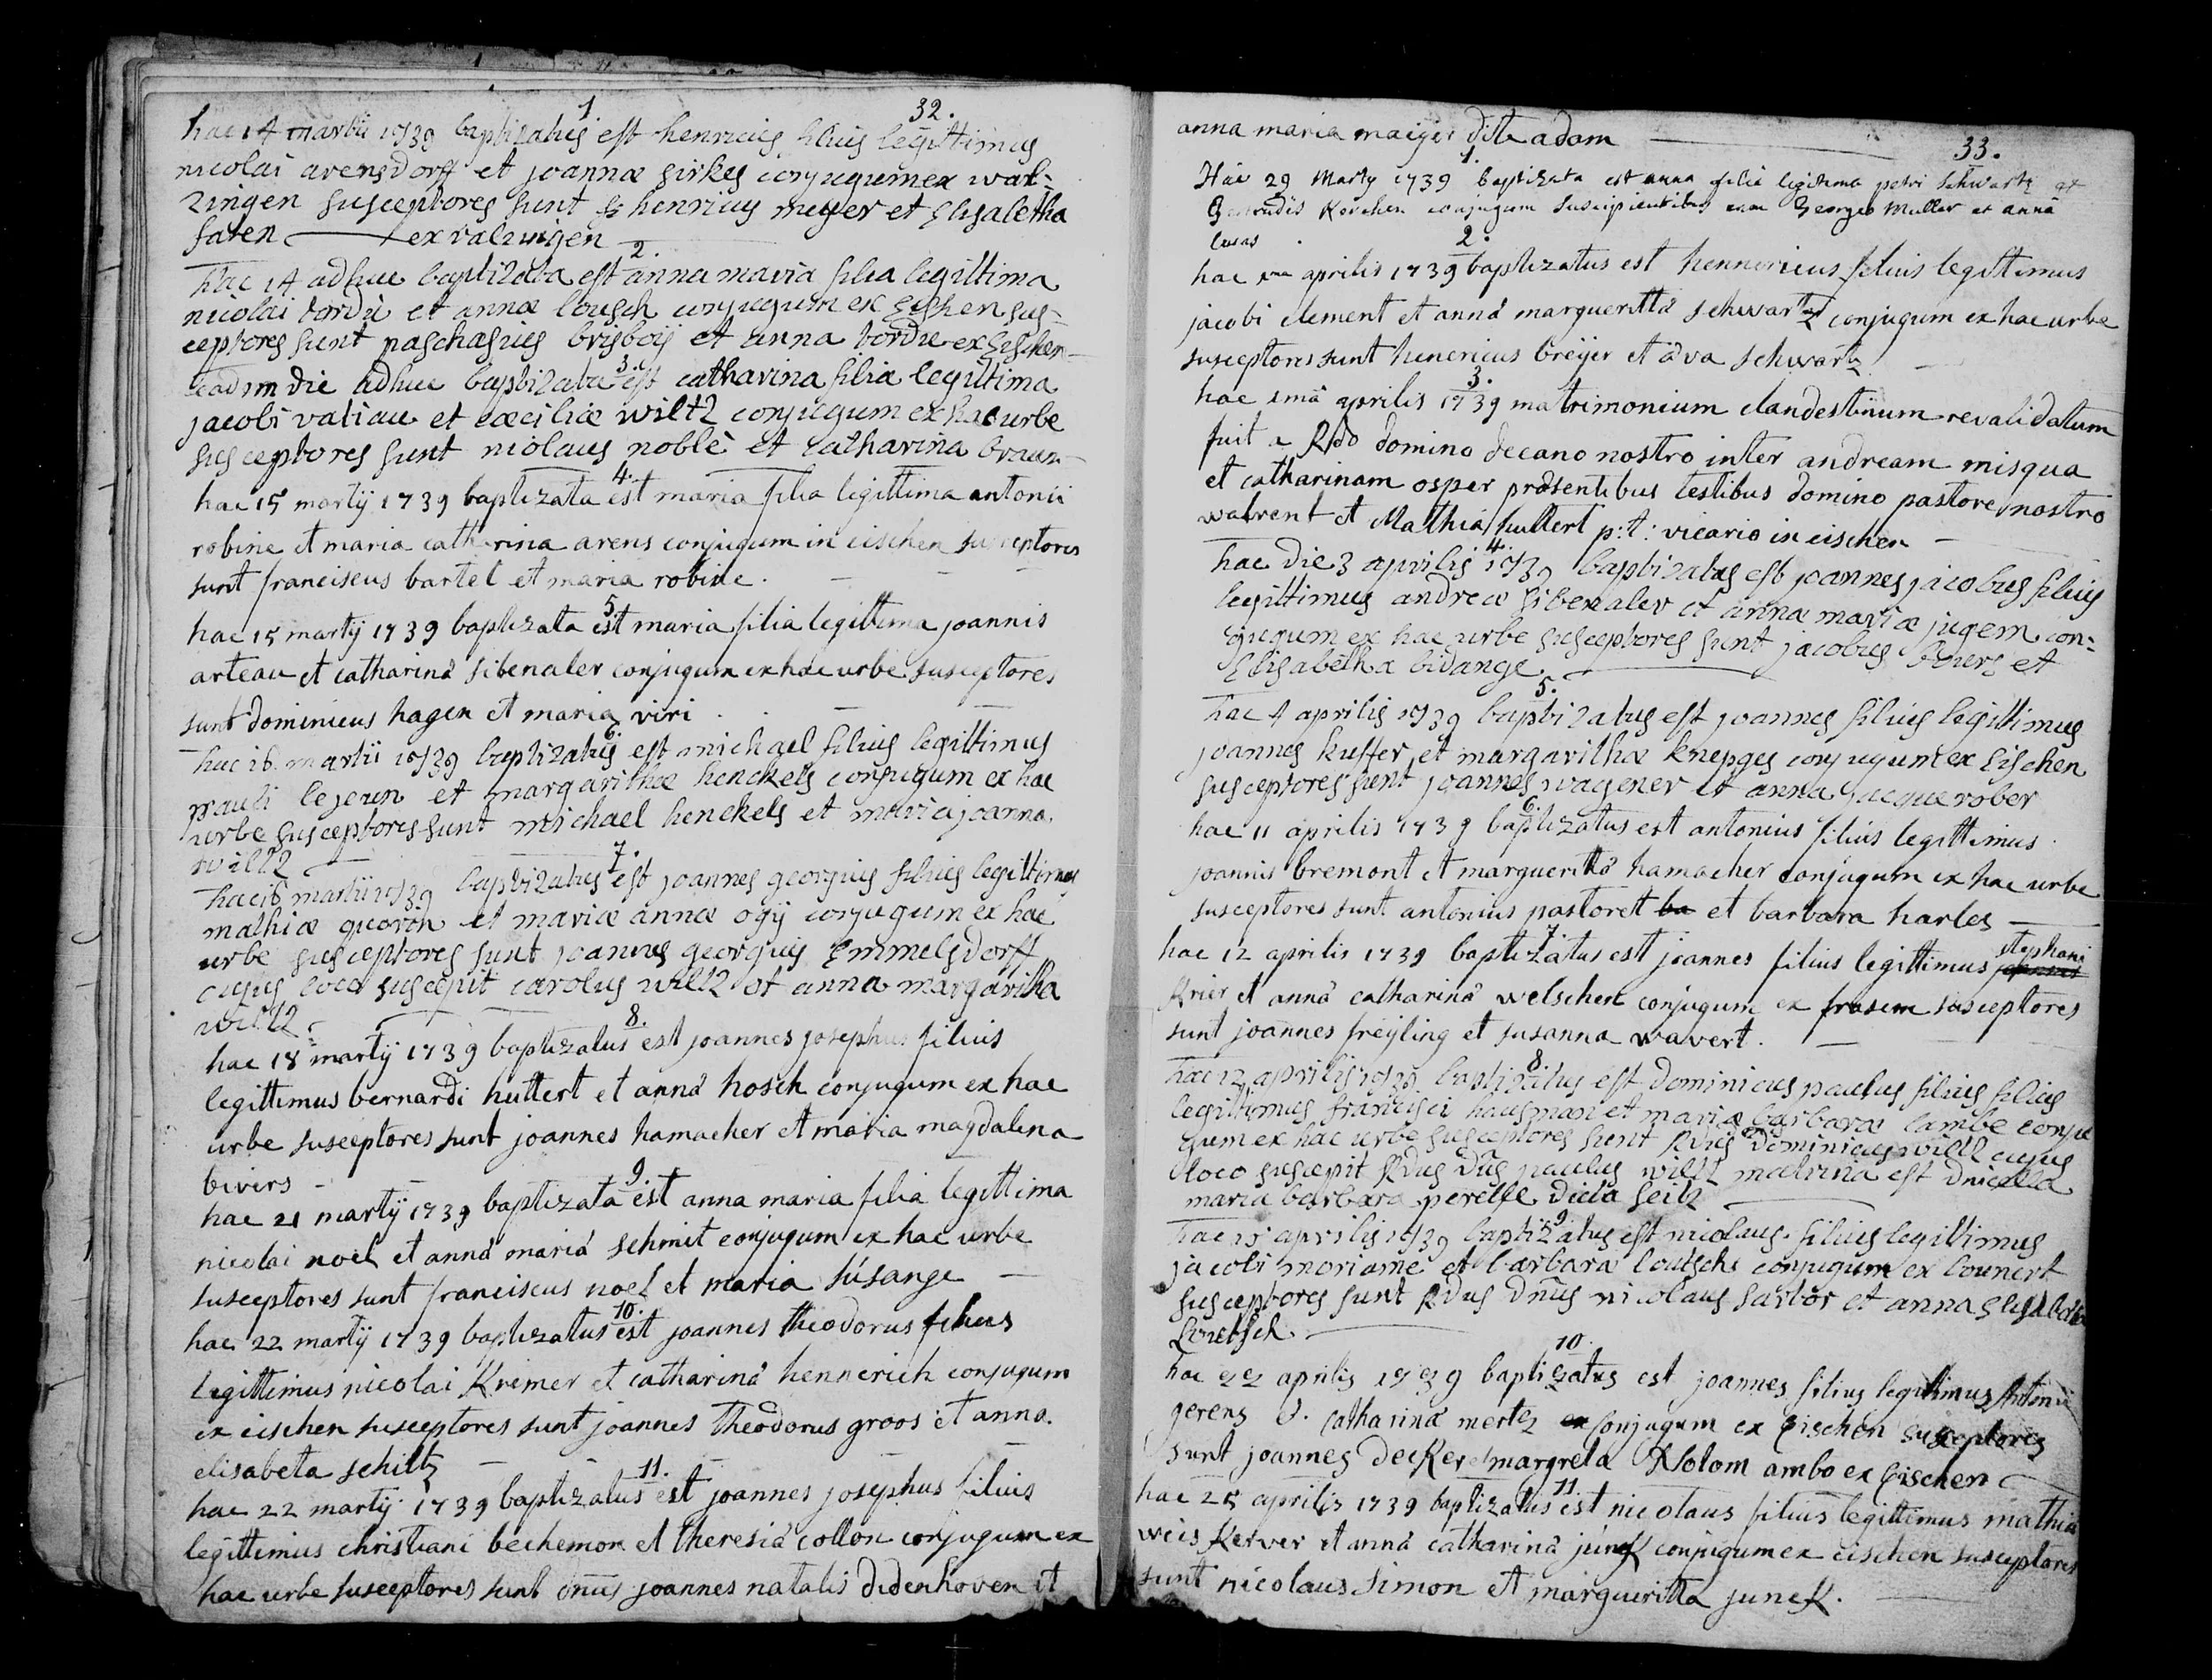 32.
1.
hac 14 martii 1739 baptizatus est henricus filius legittimus
nicolai arensdorff et joannæ sirkes conjugum ex wal=
zingen susceptores sunt henricus meyer et Elisabetha
faten ex valzingen
2.
hac 14 adhuc baptizata est anna maria filia legittima
nicolai tordu et annæ lousch conjugum ex Eischen sus=
ceptores sunt paschasius brisbois et anna tordu ex Eischen
3.
eadem die adhuc baptizata est catharina filia legittima
jacobi valiau et cæciliæ wiltz conjugum ex hac urbe
susceptores sunt niolaus noblè et catharina braun
4.
hac 15 martij 1739 baptizata est maria filia legittima antonii
robine et maria catharina arens conjugum in eischen susceptores
sunt franciscus bartel et maria robine.
5.
hac 15 martij 1739 baptizata est maria filia legittima joannis
arteau et catharinâ sibenaler conjugum ex hac urbe susceptores
sunt dominicus hagen et maria viri
6.
hac 16 martii 1739 baptizatus est michael filius legittimus
pauli lejeun et margarithæ henckels conjugum ex hac
urbe susceptores sunt michael henckels et maria joanna
wiltz
7.
hac 16 martii 1739 baptizatus est joannes georgius filius legittimus
mathiæ quoron et mariæ annæ ogij conjugum ex hac
urbe susceptores sunt joannes georgius Emmelsdorff
cujus loco suscepit carolus wiltz et anna margaritha
wiltz
8.
hac 18 martij 1739 baptizatus est joannes josephus filius
legittimus bernardi huttert et annâ hosch conjugum ex hac
urbe susceptores sunt joannes hamacher et maria magdalena
bivers
9.
hac 21 martij 1739 baptizata est anna maria filia legittima
nicolai noel et annâ mariâ schmit conjugum ex hac urbe
susceptores sunt franciscus noel et maria súsange
10.
hac 22 martij 1739 baptizatus est joannes theodorus filius
legittimus nicolai Krimer et catharinâ hennerich conjugum
ex eischen susceptores sunt joannes theodorus groos et anna
elisabeta schiltz
11.
hac 22 martij 1739 baptizatus est joannes josephus filius
legittimus christiani bechemon et theresiâ collon conjugum ex
hac urbe susceptores sunt dnūs joannes natalis didenhoven et
33.
anna maria maijer ditte adam
1.
Hac 29 Marty 1739 baptizata est anna filia legitima petri schwartz et
Gertrudis Korchen conjugum suscipientibus eam Georgeo Muller et annâ
lucas
2.
hac aprilis 1739 baptizatus est hennericus filius legittimus
jacobi clement et annâ margueritta schwartz conjugum ex hac urbe
susceptores sunt henericus breÿer et äva schwartz
3.
hac 1mâ aprilis 1739 matrimonium clandestinum revalidatum
fuit a Rdo domino decano nostro inter andream misqua
et catharinam osper præsentibus testibus domino pastore nostro
walrent et Mathiâ huttert p:t: vicario in eischen
4.
hac die 3 aprilis 1739 baptizatus est joannes jacobus filius
legittimus andreæ sibenaler et annæ mariæ jugem con=
jugum ex hac urbe susceptores sunt jacobus et
Elisabetha bidange
5.
hac 4 aprilis 1739 baptizatus est joannes filius legittimus
joannes kuffer et margarithæ knepges conjugum ex Eischen
susceptores sunt joannes wagener et anna jacque rober
6.
hac 11 aprilis 1739 baptizatus est antonius filius legittimus
joannis bremont et margueritâ hamacher conjugum ex hac urbe
susceptores sunt antonius pastorett ba et barbara harles
7
hac 12 aprilis 1739 baptizatus est joannes filius legittimus joannis stephani
Krier et annâ catharinâ welschen conjugum ex frasem susceptores
sunt joannes freÿling et susanna wavert.
8.
hac 12 aprilis 1739 baptizatus est dominicus paulus filius filius
legittimus francisci hausman et mariæ barbara lambe conju
gum ex hac urbe susceptores sunt Rdus dominicus wiltz cujus
loco suscepit Rdus dn̄s paulus wiltz matrina est dnicella
maria barbara perelle dicta seitz
9
hac 15 aprilis 1739 baptizatus est nicolaus filius legittimus
jacobi moriamé et barbara loutsch conjugum ex
susceptores sunt Rdus Dnūs nicolaus sartor et anna elisabetha
Loutsch.
10
hac 22 aprilis 1739 baptizatus est joannes filius legitimus Antonii
gerens &. catharinâ mertz ex conjugum ex Eischen susceptores
sunt joannes decker et margreta Nolom ambo ex Eischen
11.
hac 25 aprilis 1739 baptizatus est nicolaus filius legittimus mathiæ
weis Kerver et annâ catharinâ júnck conjugum ex eischen susceptores
sunt nicolaus simon et margueritta junck.